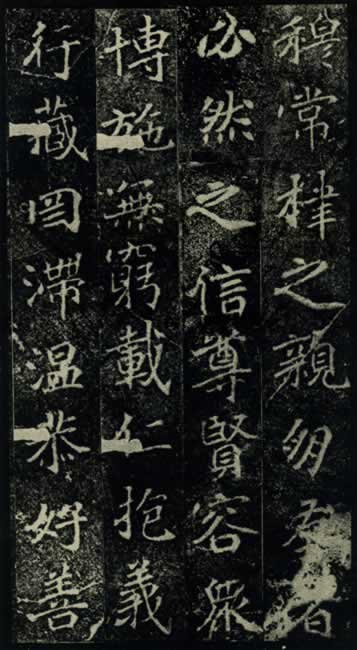 穆常棣之親朋
必然之信尊賢容衆
博施無窮載仁抱義
行藏罔滯温恭好善